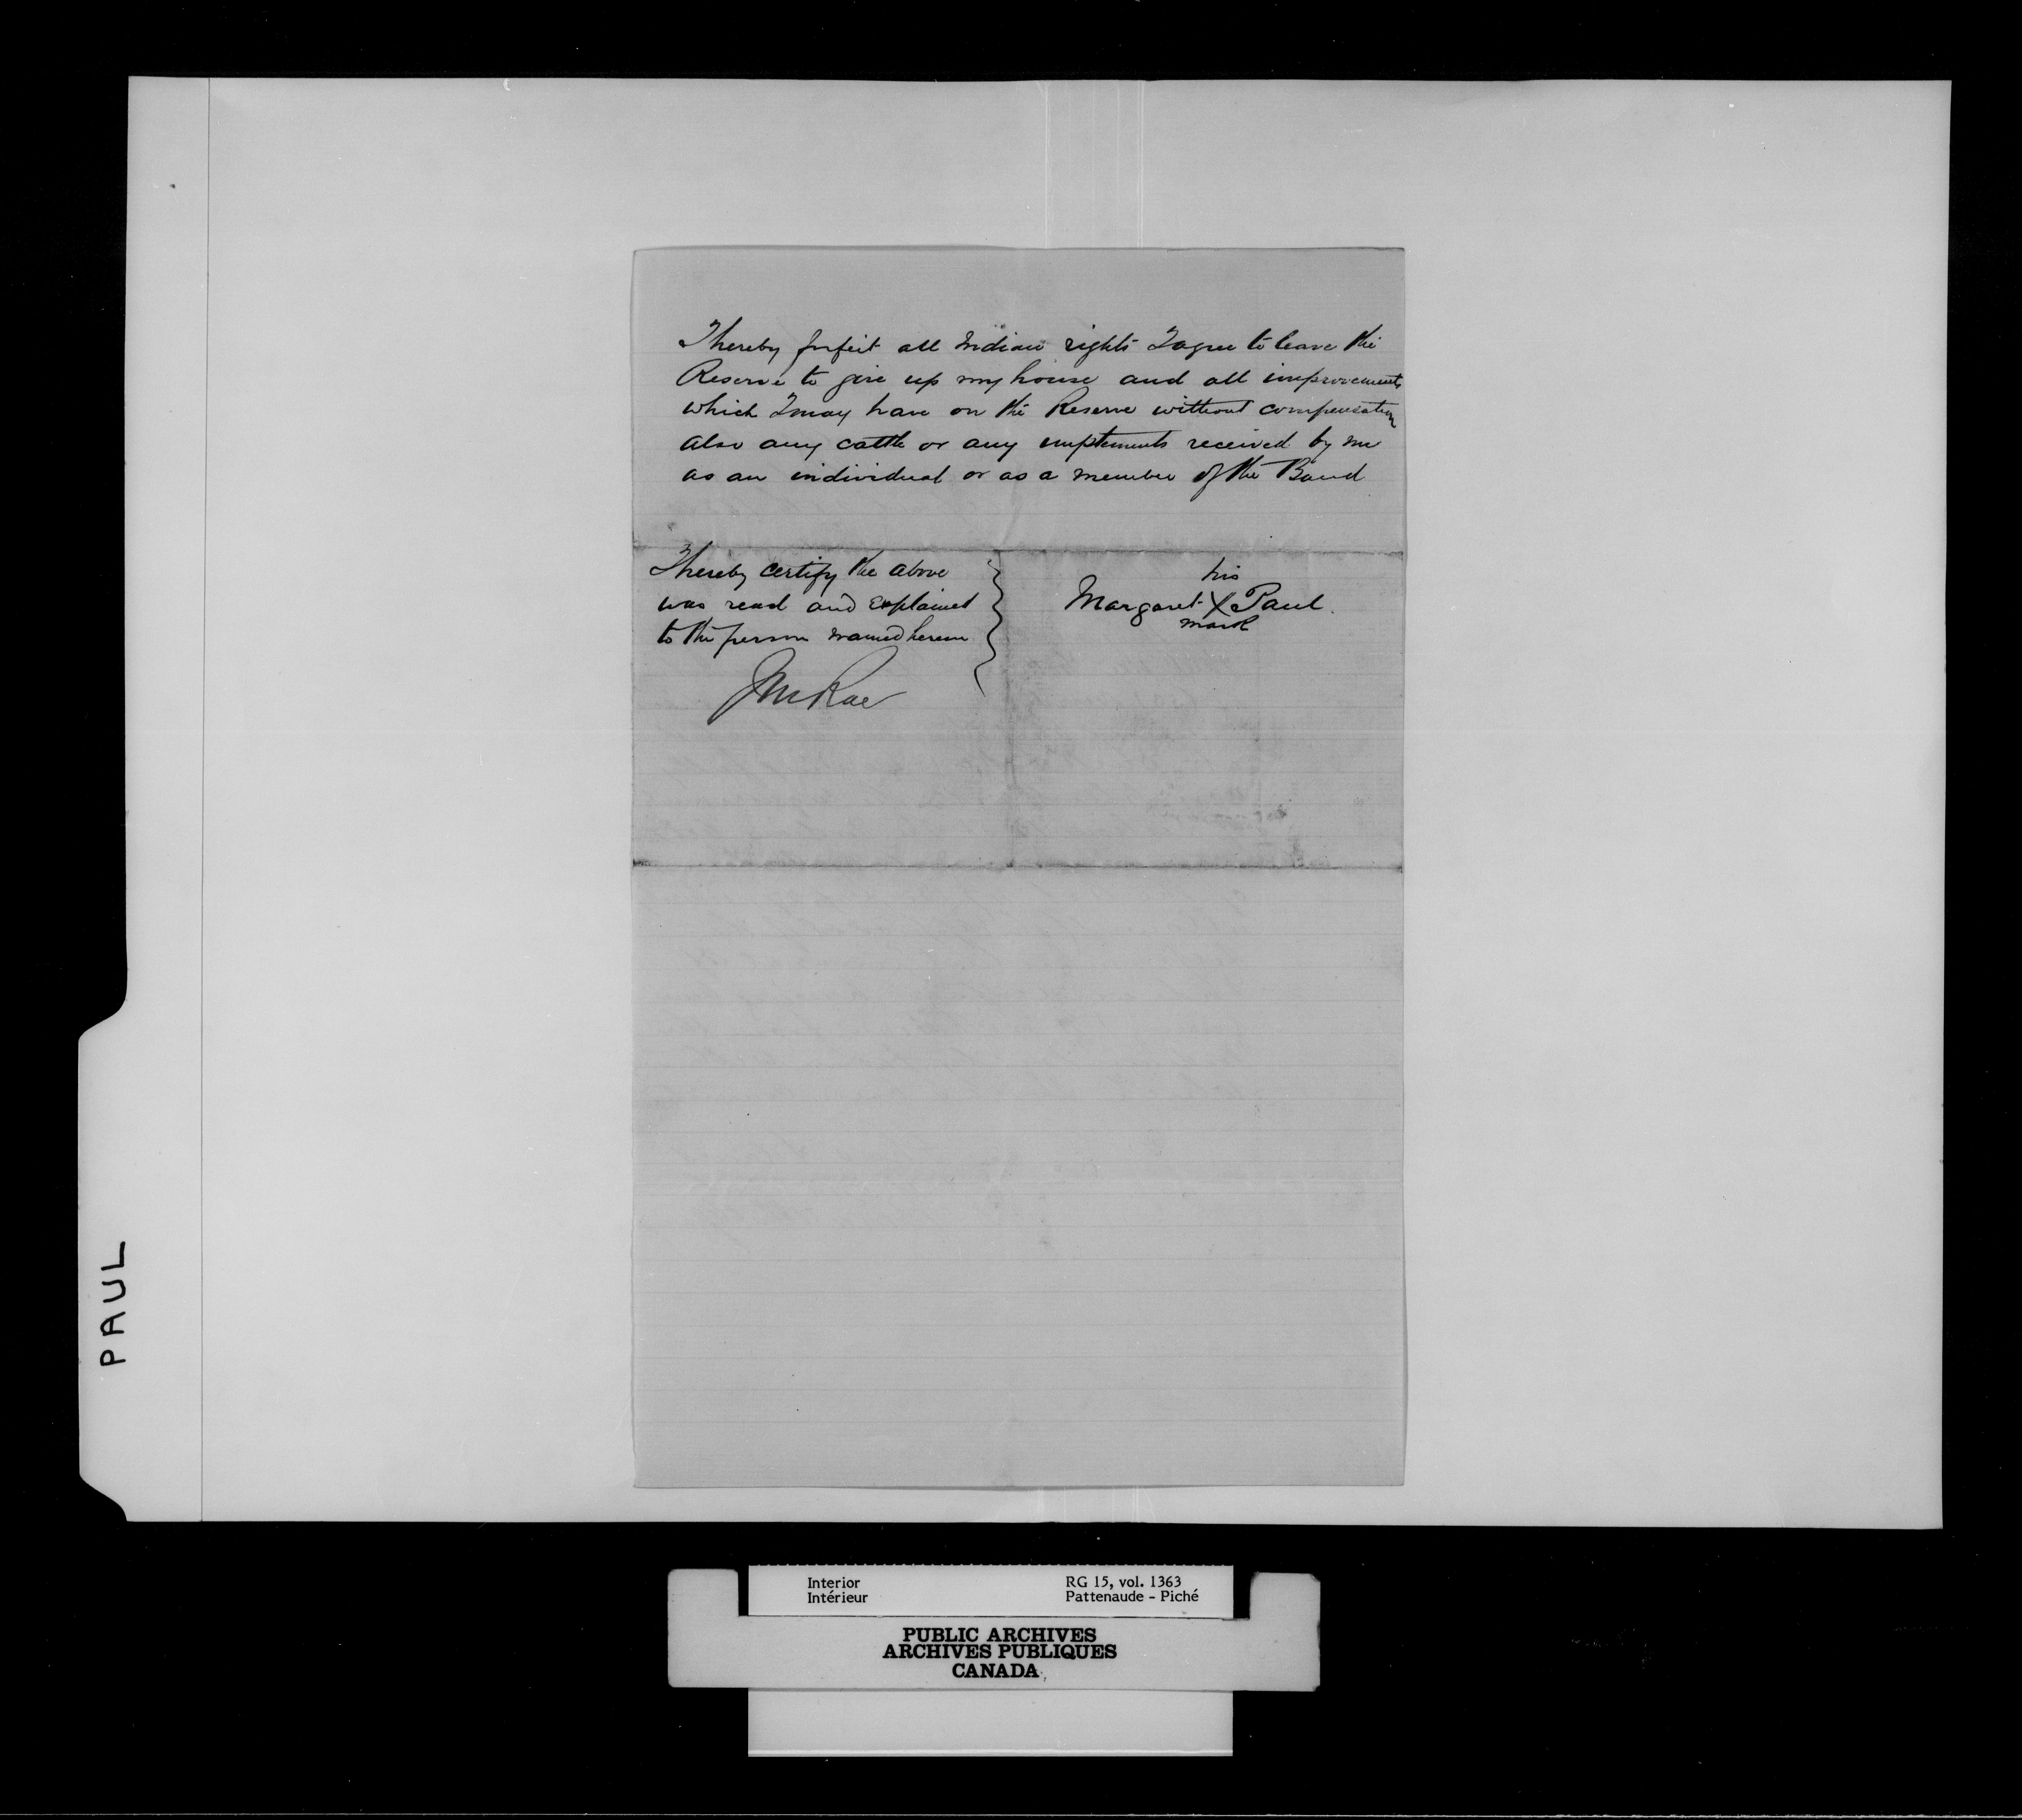 I hereby forfeit all Indian rights I agree to leave the
Reserve to give up my house and all improvements
which I may have on the Reserve without compensation
also any cattle or any implements received by me
as an individual or as a member of the Band
I hereby certify the above
was read and explained
to the person named herein
J McRae
his
Margaret X Paul.
mark
PAUL
Interior
Intérieur
RG 15, vol. 1363
Pattenaude - Piché
PUBLIC ARCHIVES
ARCHIVES PUBLIQUES
CANADA